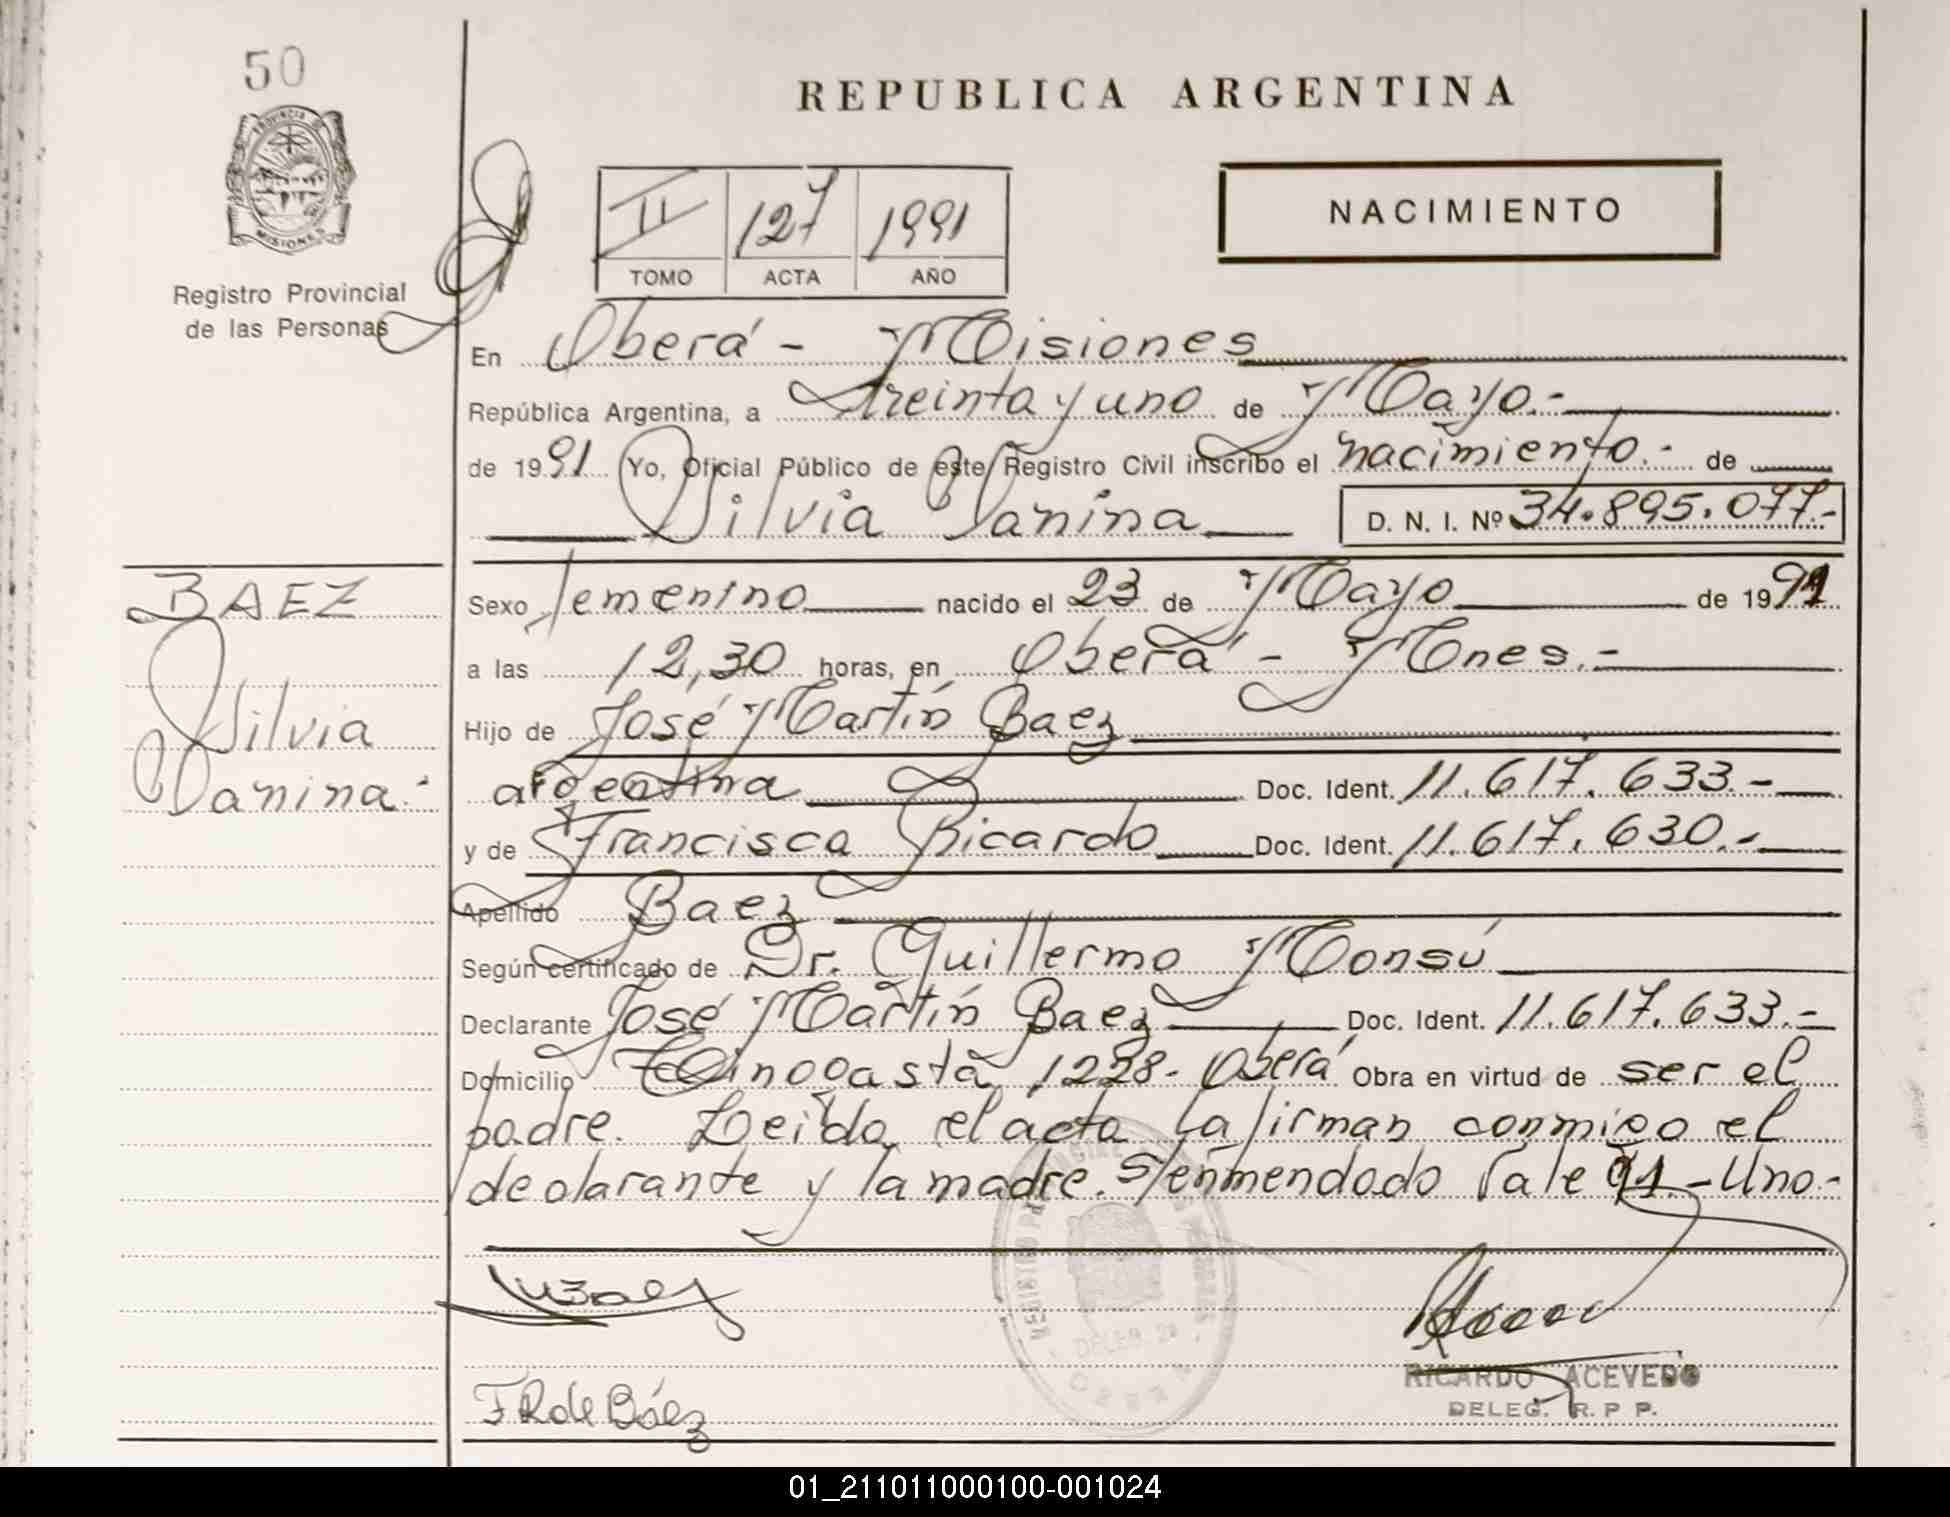 50
REPUBLICA ARGENTINA
PROVINCIA D
MISIONES
Registro Provincial
de las Personas
II 127 1991
TOMO ACTA AÑO
NACIMIENTO
En Oberá - Misiones
República Argentina, a treinta y uno de Mayo.-
de 1991 Yo, Oficial Público de este Registro Civil inscribo el nacimiento.- de
Silvia Vanina D. N. I. Nº 34.895.077.-
BAEZ
Silvia
Vanina.-
Sexo femenino nacido el 23 de Mayo de 1991
a las 12,30 horas, en Oberá - Mnes.-
Hijo de José Martín Baez
argentina Doc. Ident. 11.617.633.-
y de Francisca Ricardo Doc. Ident. 11.617.630.-
Apellido Baez
Según certificado de Dr. Guillermo Monsú
Declarante José Martín Baez Doc. Ident. 11.617.633.-
Domicilio Tinogasta 1228- Oberá Obra en virtud de ser el
padre. Leida el acta la firman conmigo el
declarante y la madre. S/enmendado Vale 91.-Uno.-
DELEG. 2
FR de Báez
RICARDO ACEVEDO
DELEG. R. P P.
01_211011000100-001024